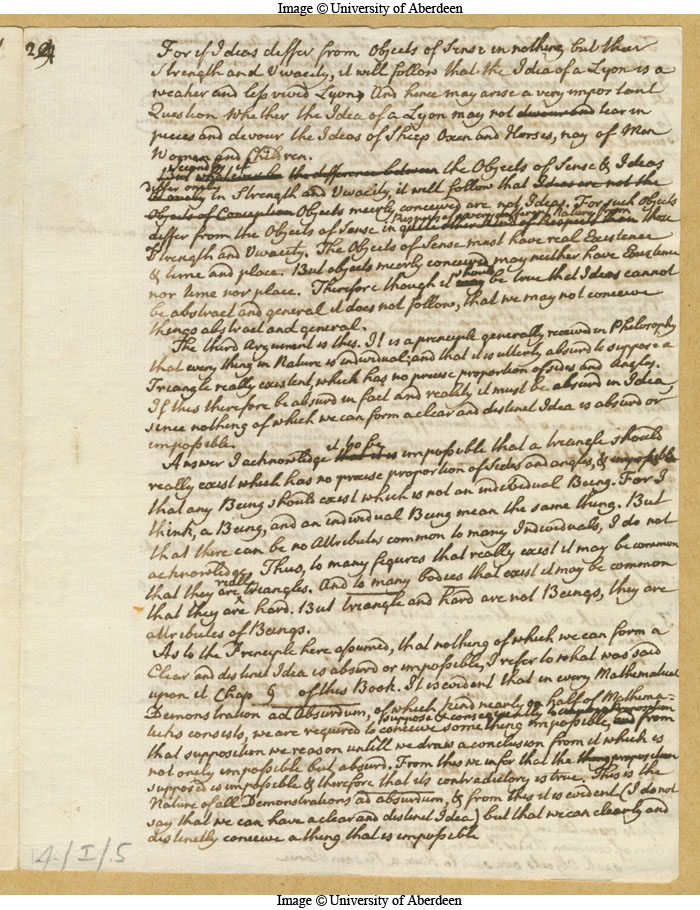 Image © University of Aberdeen
For if Ideas differ from Objects of Sense in nothing but their
Strength and Vivacity, it will follow that the Idea of a Lyon is a
weaker and less vivid Lyon, And hence may arise a very important
Question Whether the Idea of a Lyon may not devour and tear in
pieces and devour the Ideas of Sheep Oxen and Horses, nay of Men
Women and Children.
Secondly if
But whatever be the difference between the Objects of Sense & Ideas
differ onely
in Strength and Vivacity, it will follow that Ideas are not the
Objects of Conception Objects meerly conceived are not Ideas. For such Objects
differ from the Objects of Sense in quite other
Respects of a very different Nature from these
of Strength and Vivacity. The Objects of Sense must have real Existence
& time and place. But objects meerly conceived may neither have Existence
nor time nor place. Therefore though it should be true that Ideas cannot
be abstract and general it does not follow, that we may not conceive
things abstract and general.
The third Argument is this. It is a principle generally received in Philosophy
that every thing in Nature is individual; and that it is utterly absurd to suppose a
Triangle really existent, which has no precise proportion of sides and Angles.
If this therefore be absurd in fact and reality it must be absurd in Idea,
since nothing of which we can form a clear and distinct Idea is absurd or
impossible.
it to be
Answer I acknowledge that it is impossible that a triangle should
really exist which has no precise proportion of Sides and angles, & impossible
that any Being should exist which is not an individual Being. For I
think, a Being, and an individual Being mean the same thing. But
that there can be no Attributes common to many Individuals, I do not
acknowledge. Thus, to many figures that really exist it may be common
that they are really triangles. And to many bodies that exist it may be common
that they are hard. But triangle and hard are not Beings, they are
attributes of Beings.
As to the Principle here assumed, that nothing of which we can form a
Clear and distinct Idea is absurd or impossible, I refer to what was said
upon it Chap of this Book. It is evident that in every Mathematical
Demonstration ad Absurdum, of which kind nearly half of Mathema-
ticks consists, we are required to suppose & consequently to
conceive something impossible, and from
that supposition we reason untill we draw a conclusion from it which is
not onely impossible but absurd. From this we infer that the thing proposition
supposed is impossible & therefore that its contradictory is true. This is the
Nature of all Demonstrations ad absurdum, & from this it is evident (I do not
say that we can have a clear and distinct Idea) but that we can clearly and
distinctly conceive a thing that is impossible
4/I/5
Image © University of Aberdeen